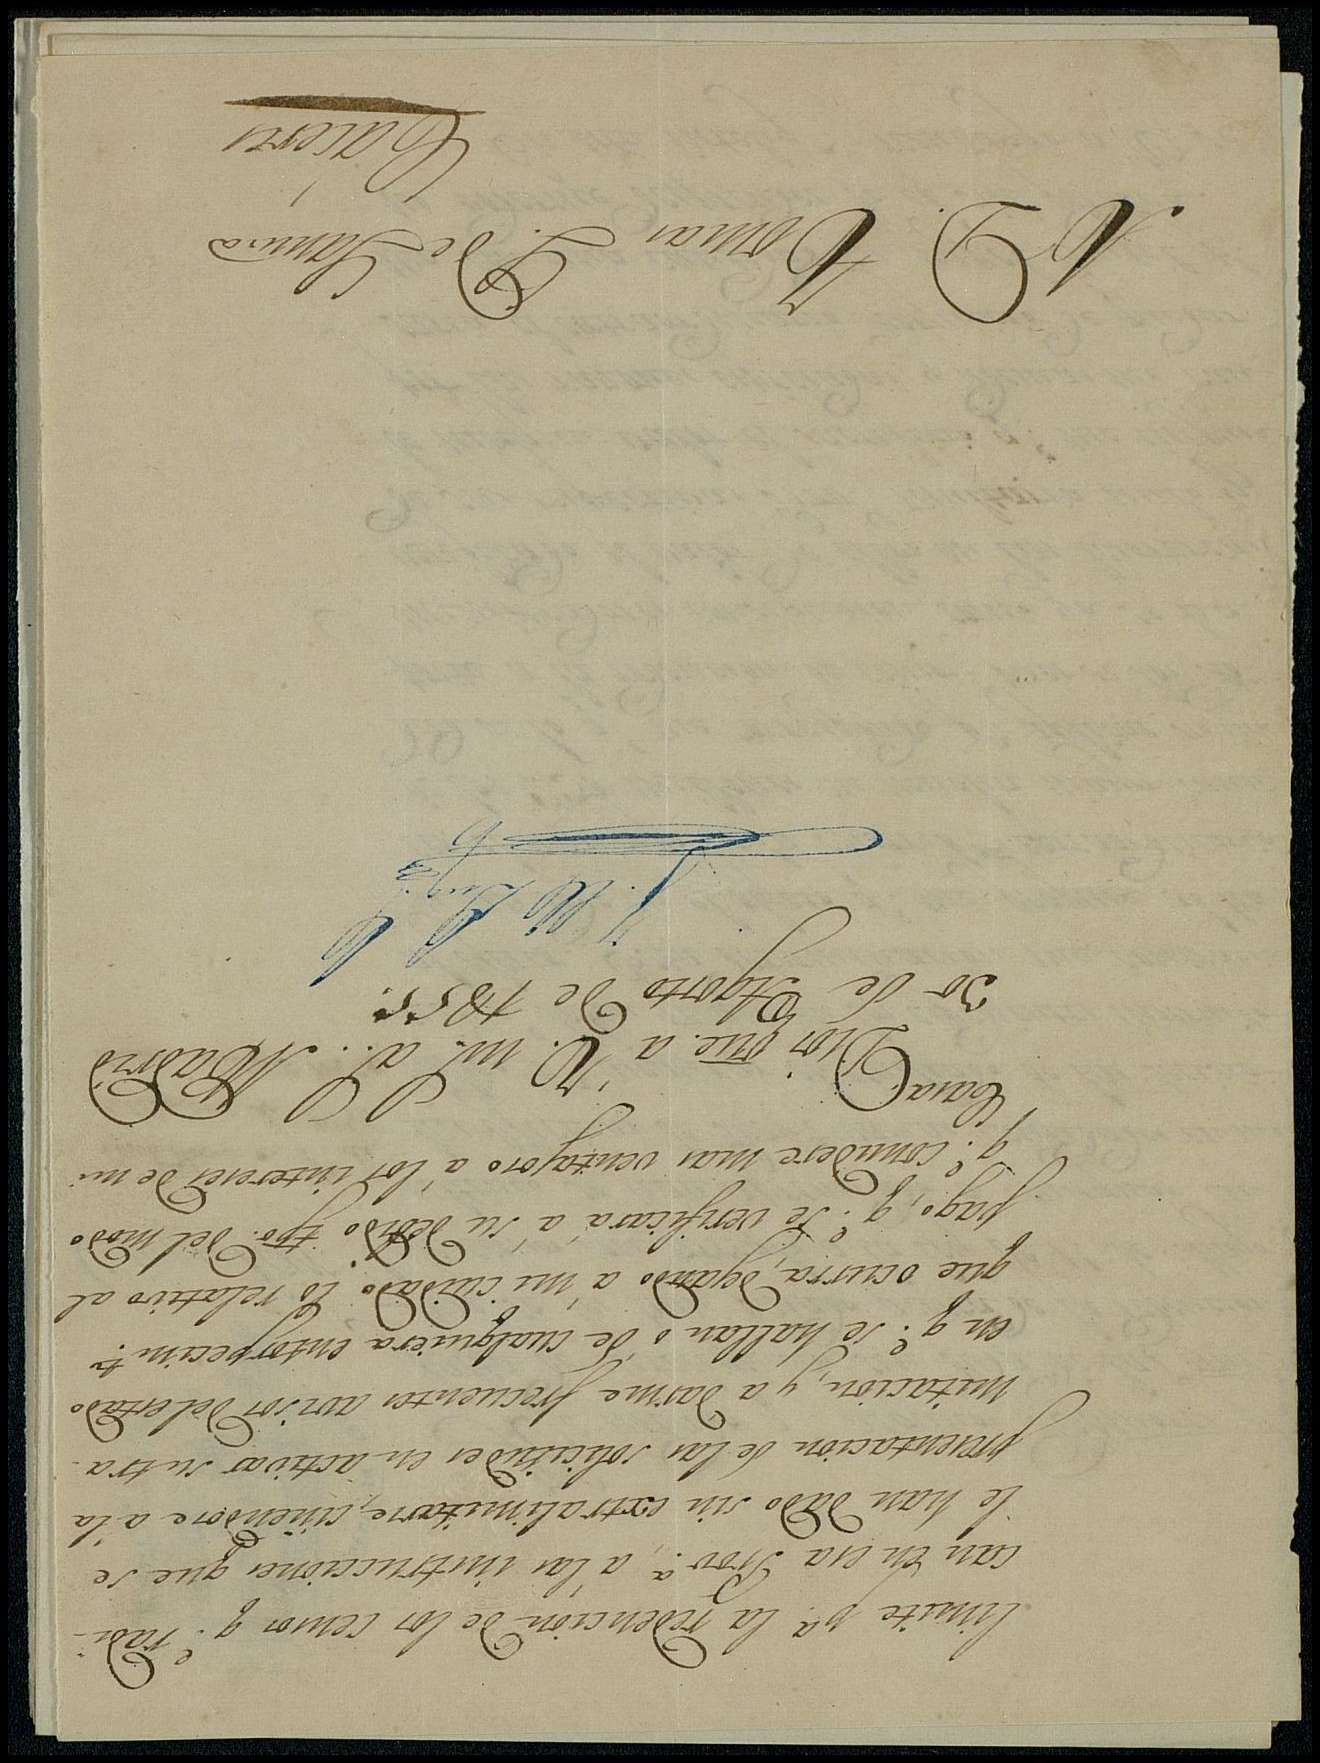 limite p.ª la redencion de los censos q.e radi-
can en esa Prov.ª, a las instrucciones que se
le han dado sin extralimitarse, ciñendose a la
presentacion de las solicitudes en activar su tra-
mitacion, y a darme frecuentes avisos del estado
en q.e se hallan o de cualquiera entorpecim.to
que ocurra, dejando a mi cuidado lo relativo al
pago, q.e se verificará á su debido tpo. del modo
q.e considere mas ventajoso a los intereses de mi
Casa.
Dios gue. a V. m. a.s Madrid
30 de Agosto de 1855.
A D. Tomas G. de Sanra
Cáceres